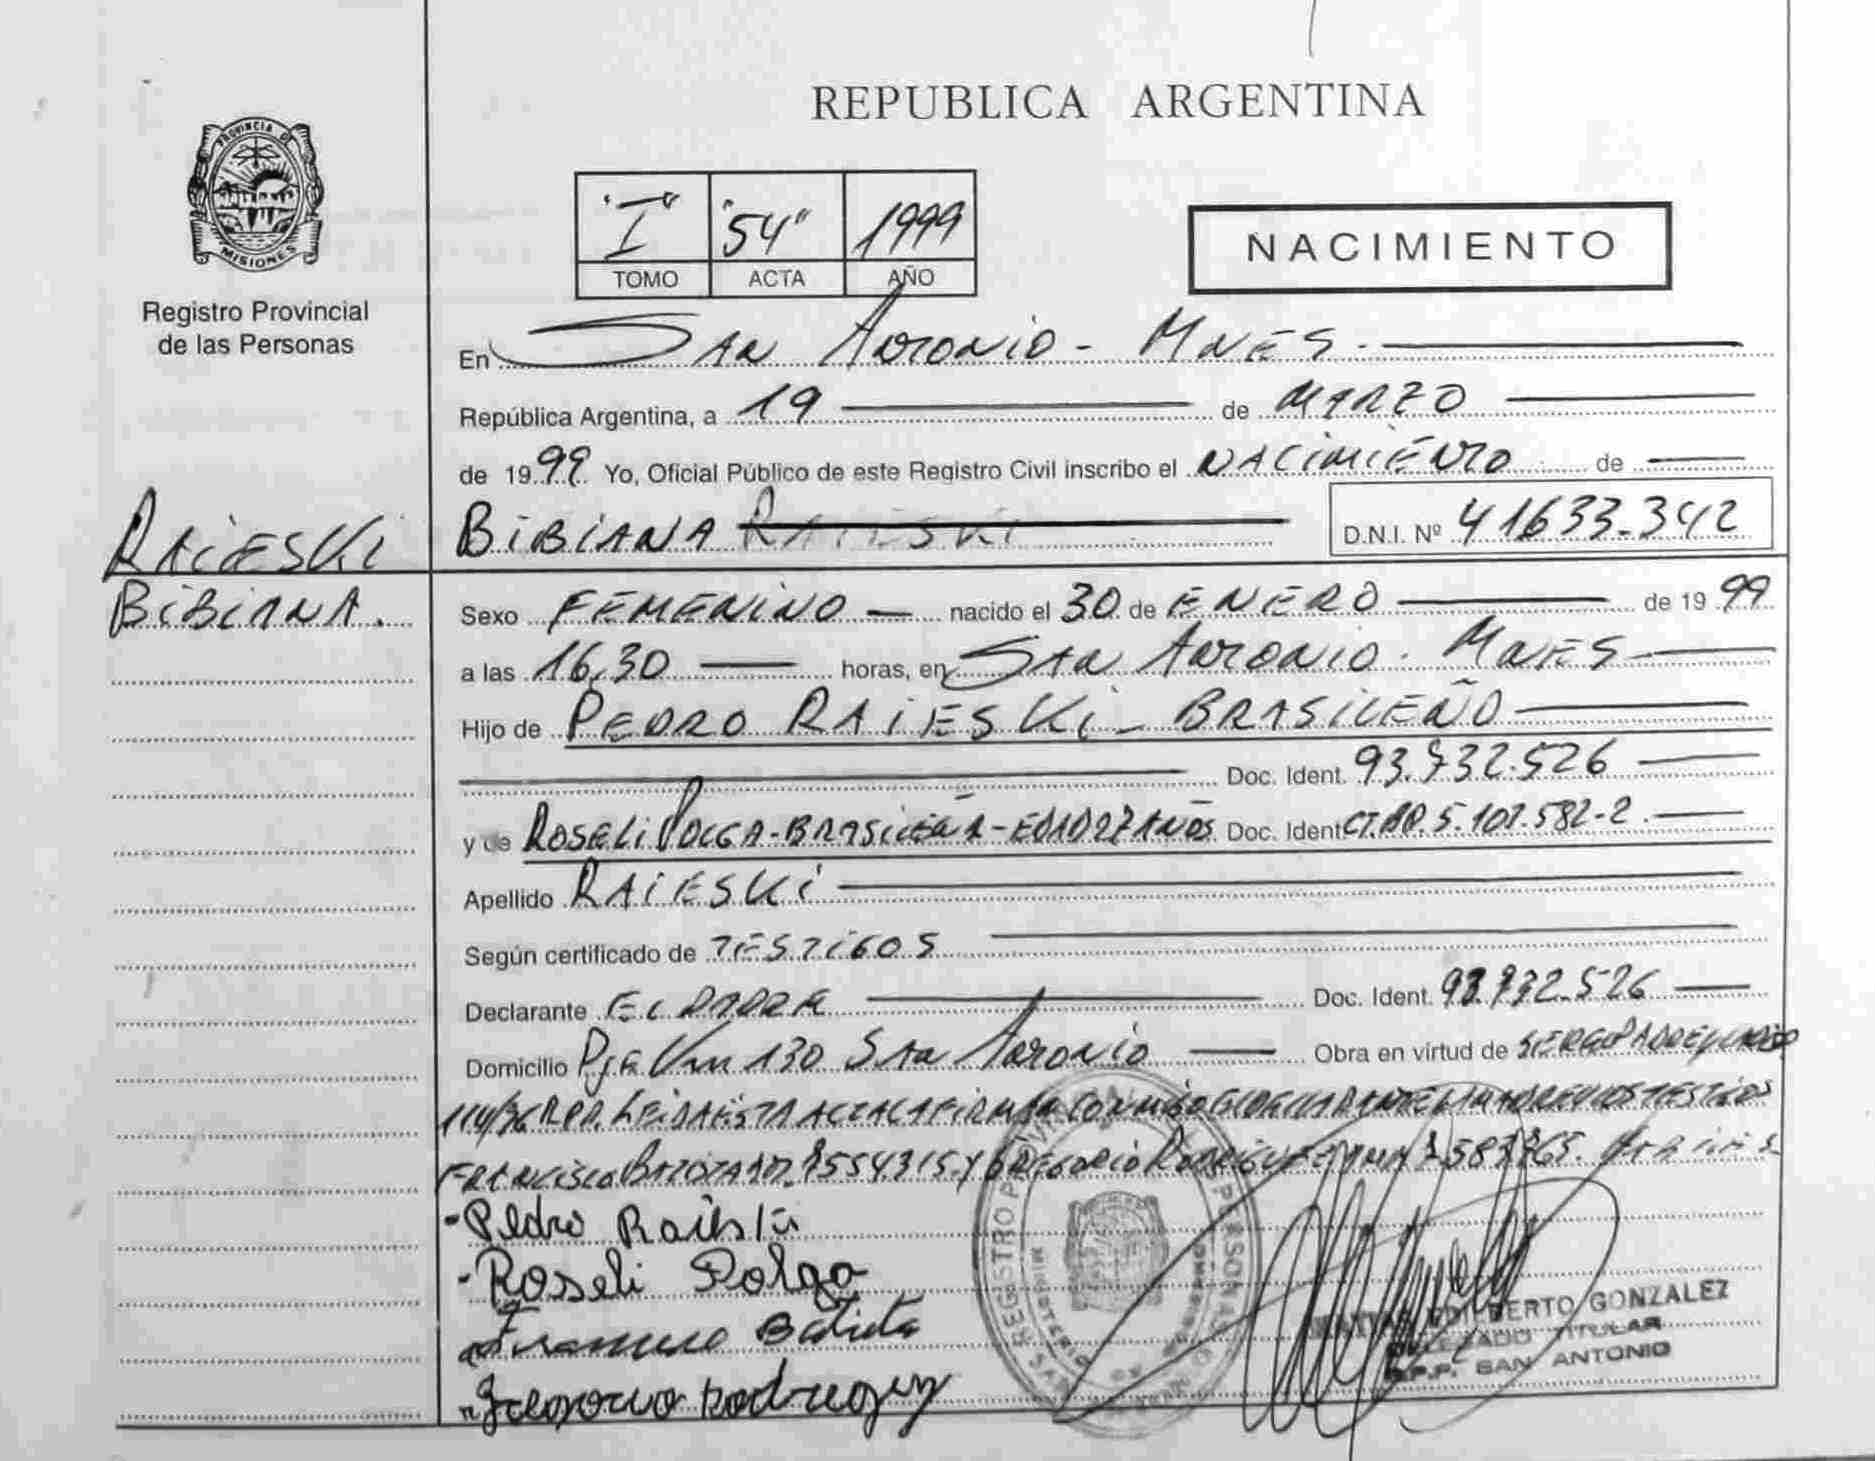 REPUBLICA ARGENTINA
PROVINCIA DE
MISIONES
Registro Provincial
de las Personas
"I" "54" 1999
TOMO ACTA AÑO
NACIMIENTO
En SAN ANTONIO - MNES.
República Argentina, a 19 de MARZO
de 1999 Yo, Oficial Público de este Registro Civil inscribo el NACIMIENTO de
BIBIANA RAIESKI D.N.I. Nº 41633.342
RAIESKI
BIBIANA.
Sexo FEMENINO nacido el 30 de ENERO de 1999
a las 16,30 horas, en SAN ANTONIO. MNES
Hijo de PEDRO RAIESKI - BRASILEÑO
Doc. Ident. 93.732.526
y de ROSELI POLGA - BRASILEÑA - EDAD 27 AÑOS Doc. Ident 5.107.582-2.
Apellido RAIESKI
Según certificado de TESTIGOS
Declarante EL PADRE Doc. Ident. 93.732.526
Domicilio Pje Km 130 SAN ANTONIO Obra en virtud de
114/96 RPP. LEIDA ESTA ACTA LA FIRMAN CONMIGO LA MADRE Y LOS TESTIGOS
FRANCISCO Y GREGORIO RODRIGUEZ
- Pedro Raieski
- Roseli Polga
Batista
Gregorio Rodriguez
REGISTRO PROVINCIAL
EDILBERTO GONZALEZ
DELEGADO TITULAR
R.P.P. SAN ANTONIO